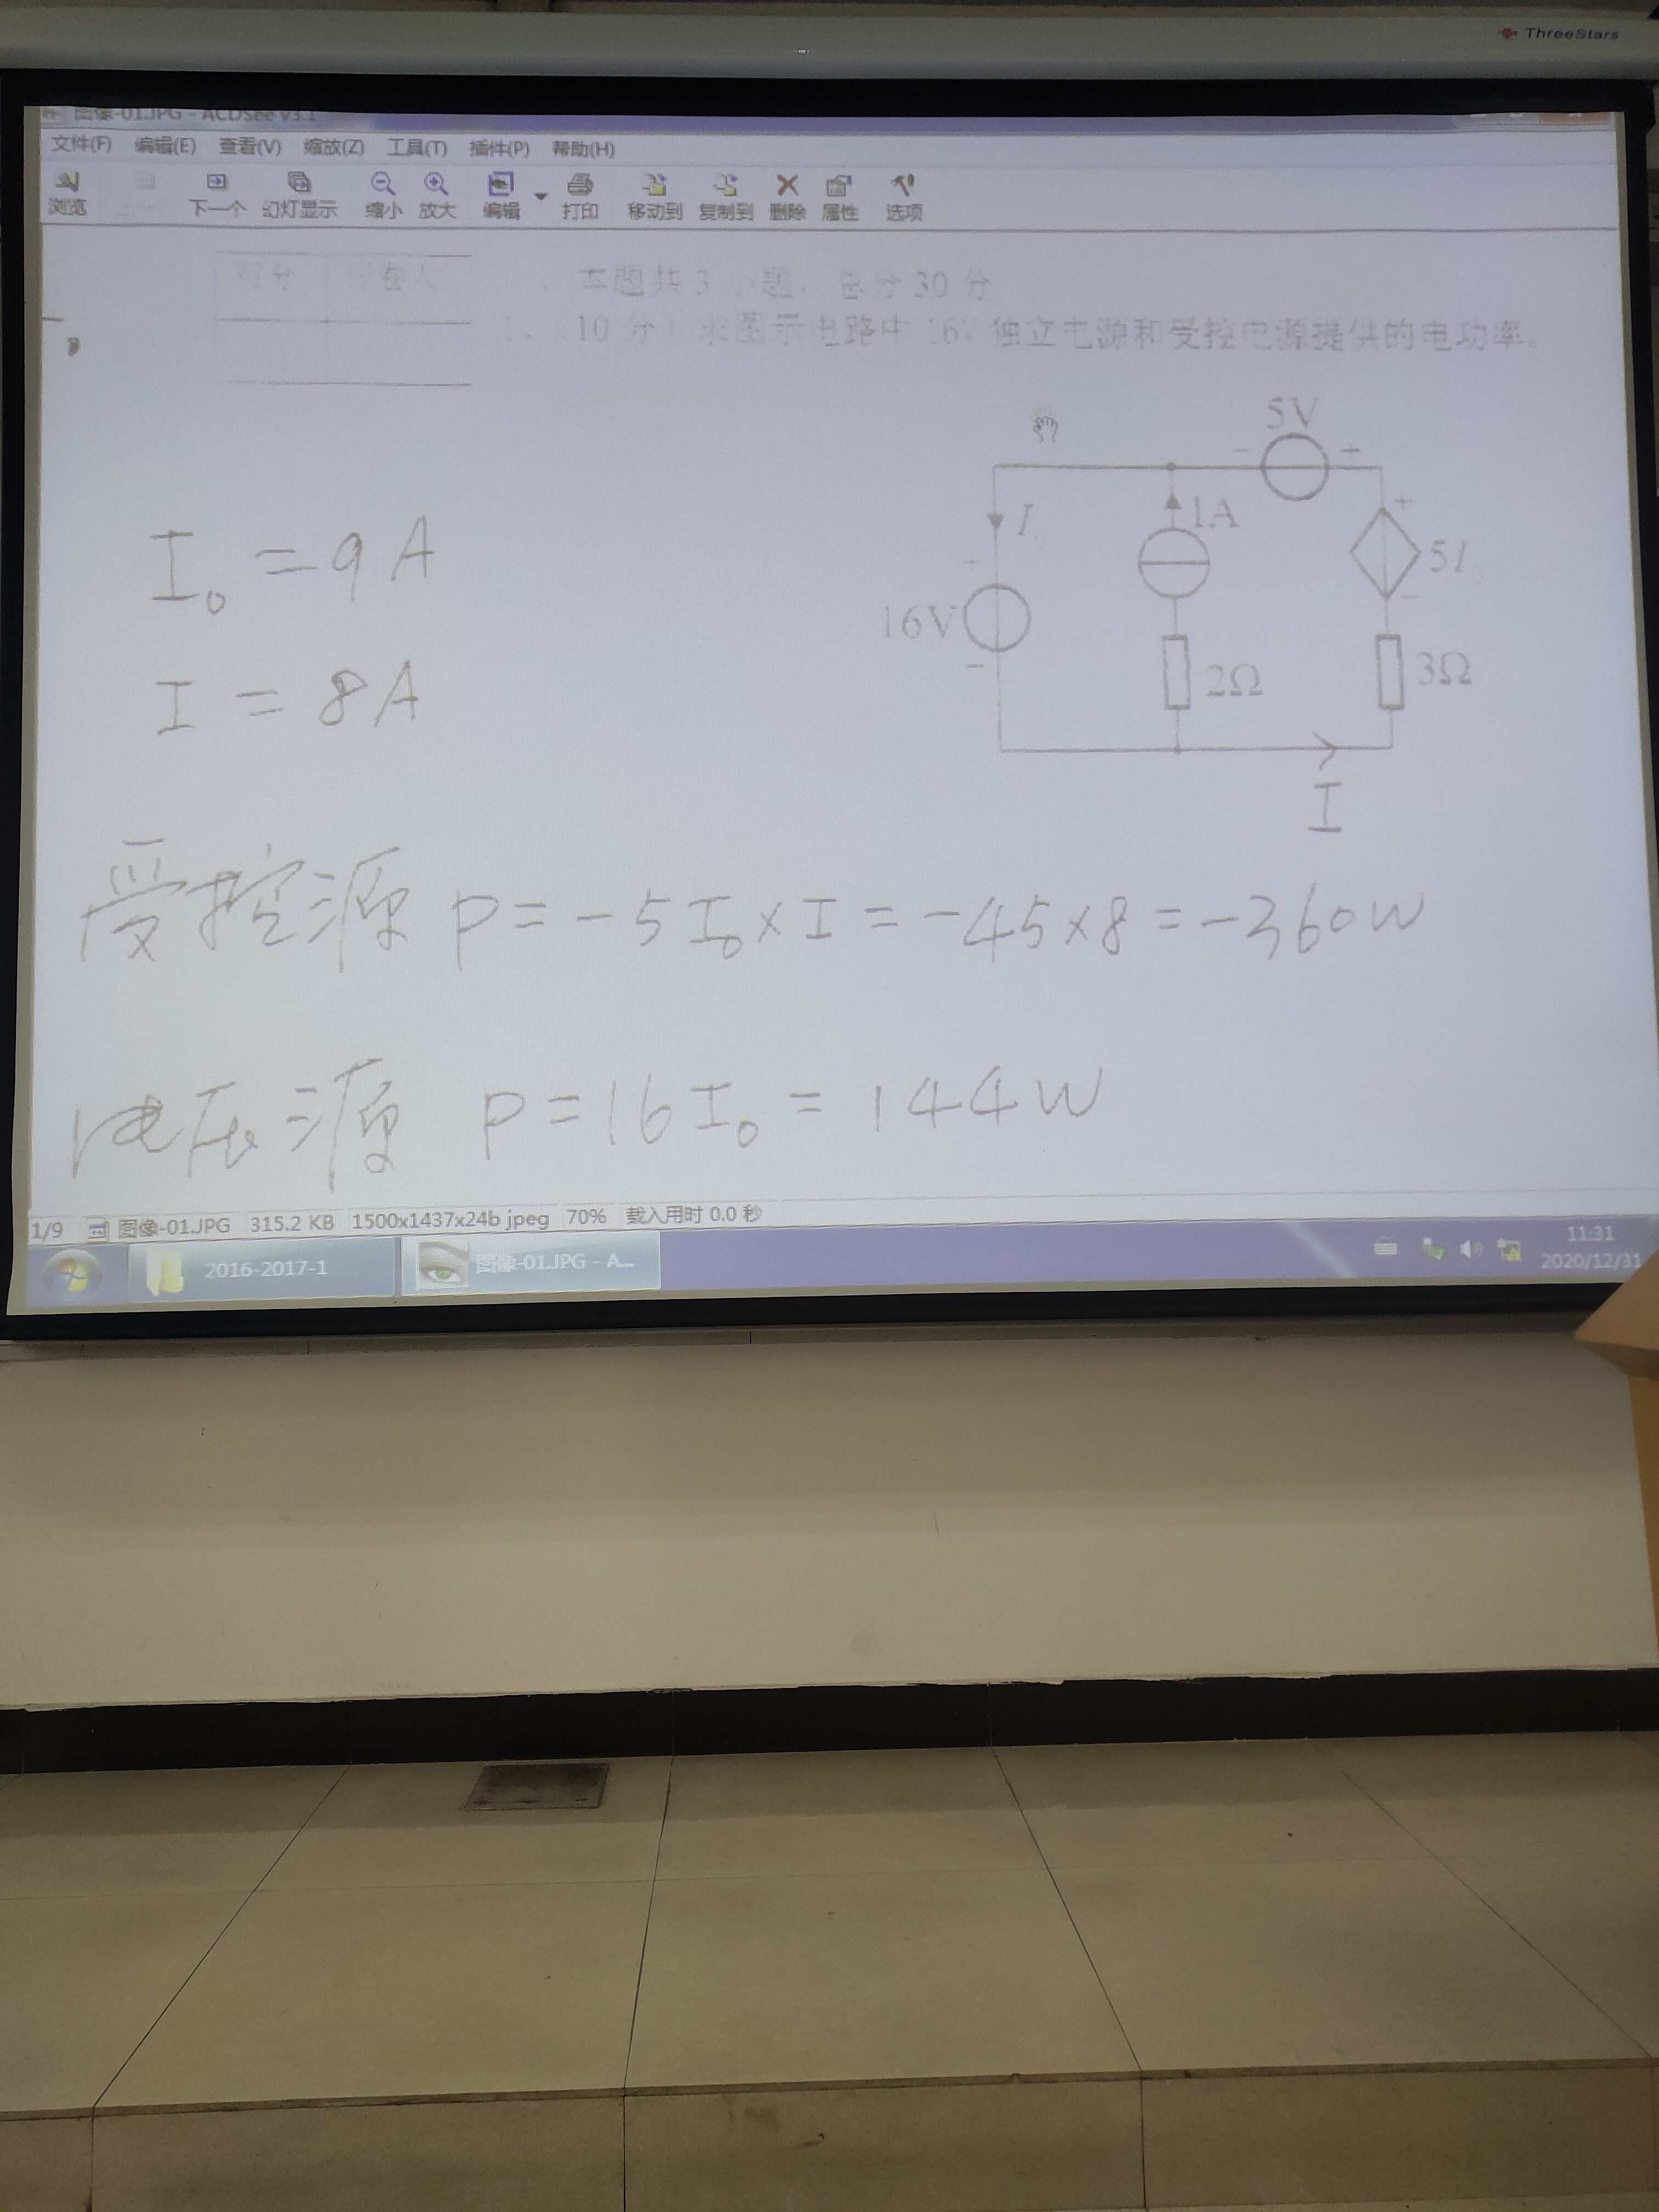 ThreeStars
图像-01.JPG - ACDSee v3.1
文件(F) 编辑(E) 查看(V) 缩放(Z) 工具(T) 插件(P) 帮助(H)
浏览 下一个 幻灯显示 缩小 放大 编辑 打印 移动到 复制到 删除 属性 选项
得分 评卷人
一、本题共3小题，总分30分
1. （10分）求图示电路中16V独立电源和受控电源提供的电功率。
5V
- +
I₀ 1A +
+ 5I₀
16V -
- 2Ω 3Ω
I
I₀ = 9A
I = 8A
受控源 P = -5I₀×I = -45×8 = -360W
电压源 P = 16I₀ = 144W
1/9 图像-01.JPG 315.2 KB 1500x1437x24b jpeg 70% 载入用时 0.0 秒
2016-2017-1 图像-01.JPG - A...
11:31
2020/12/31